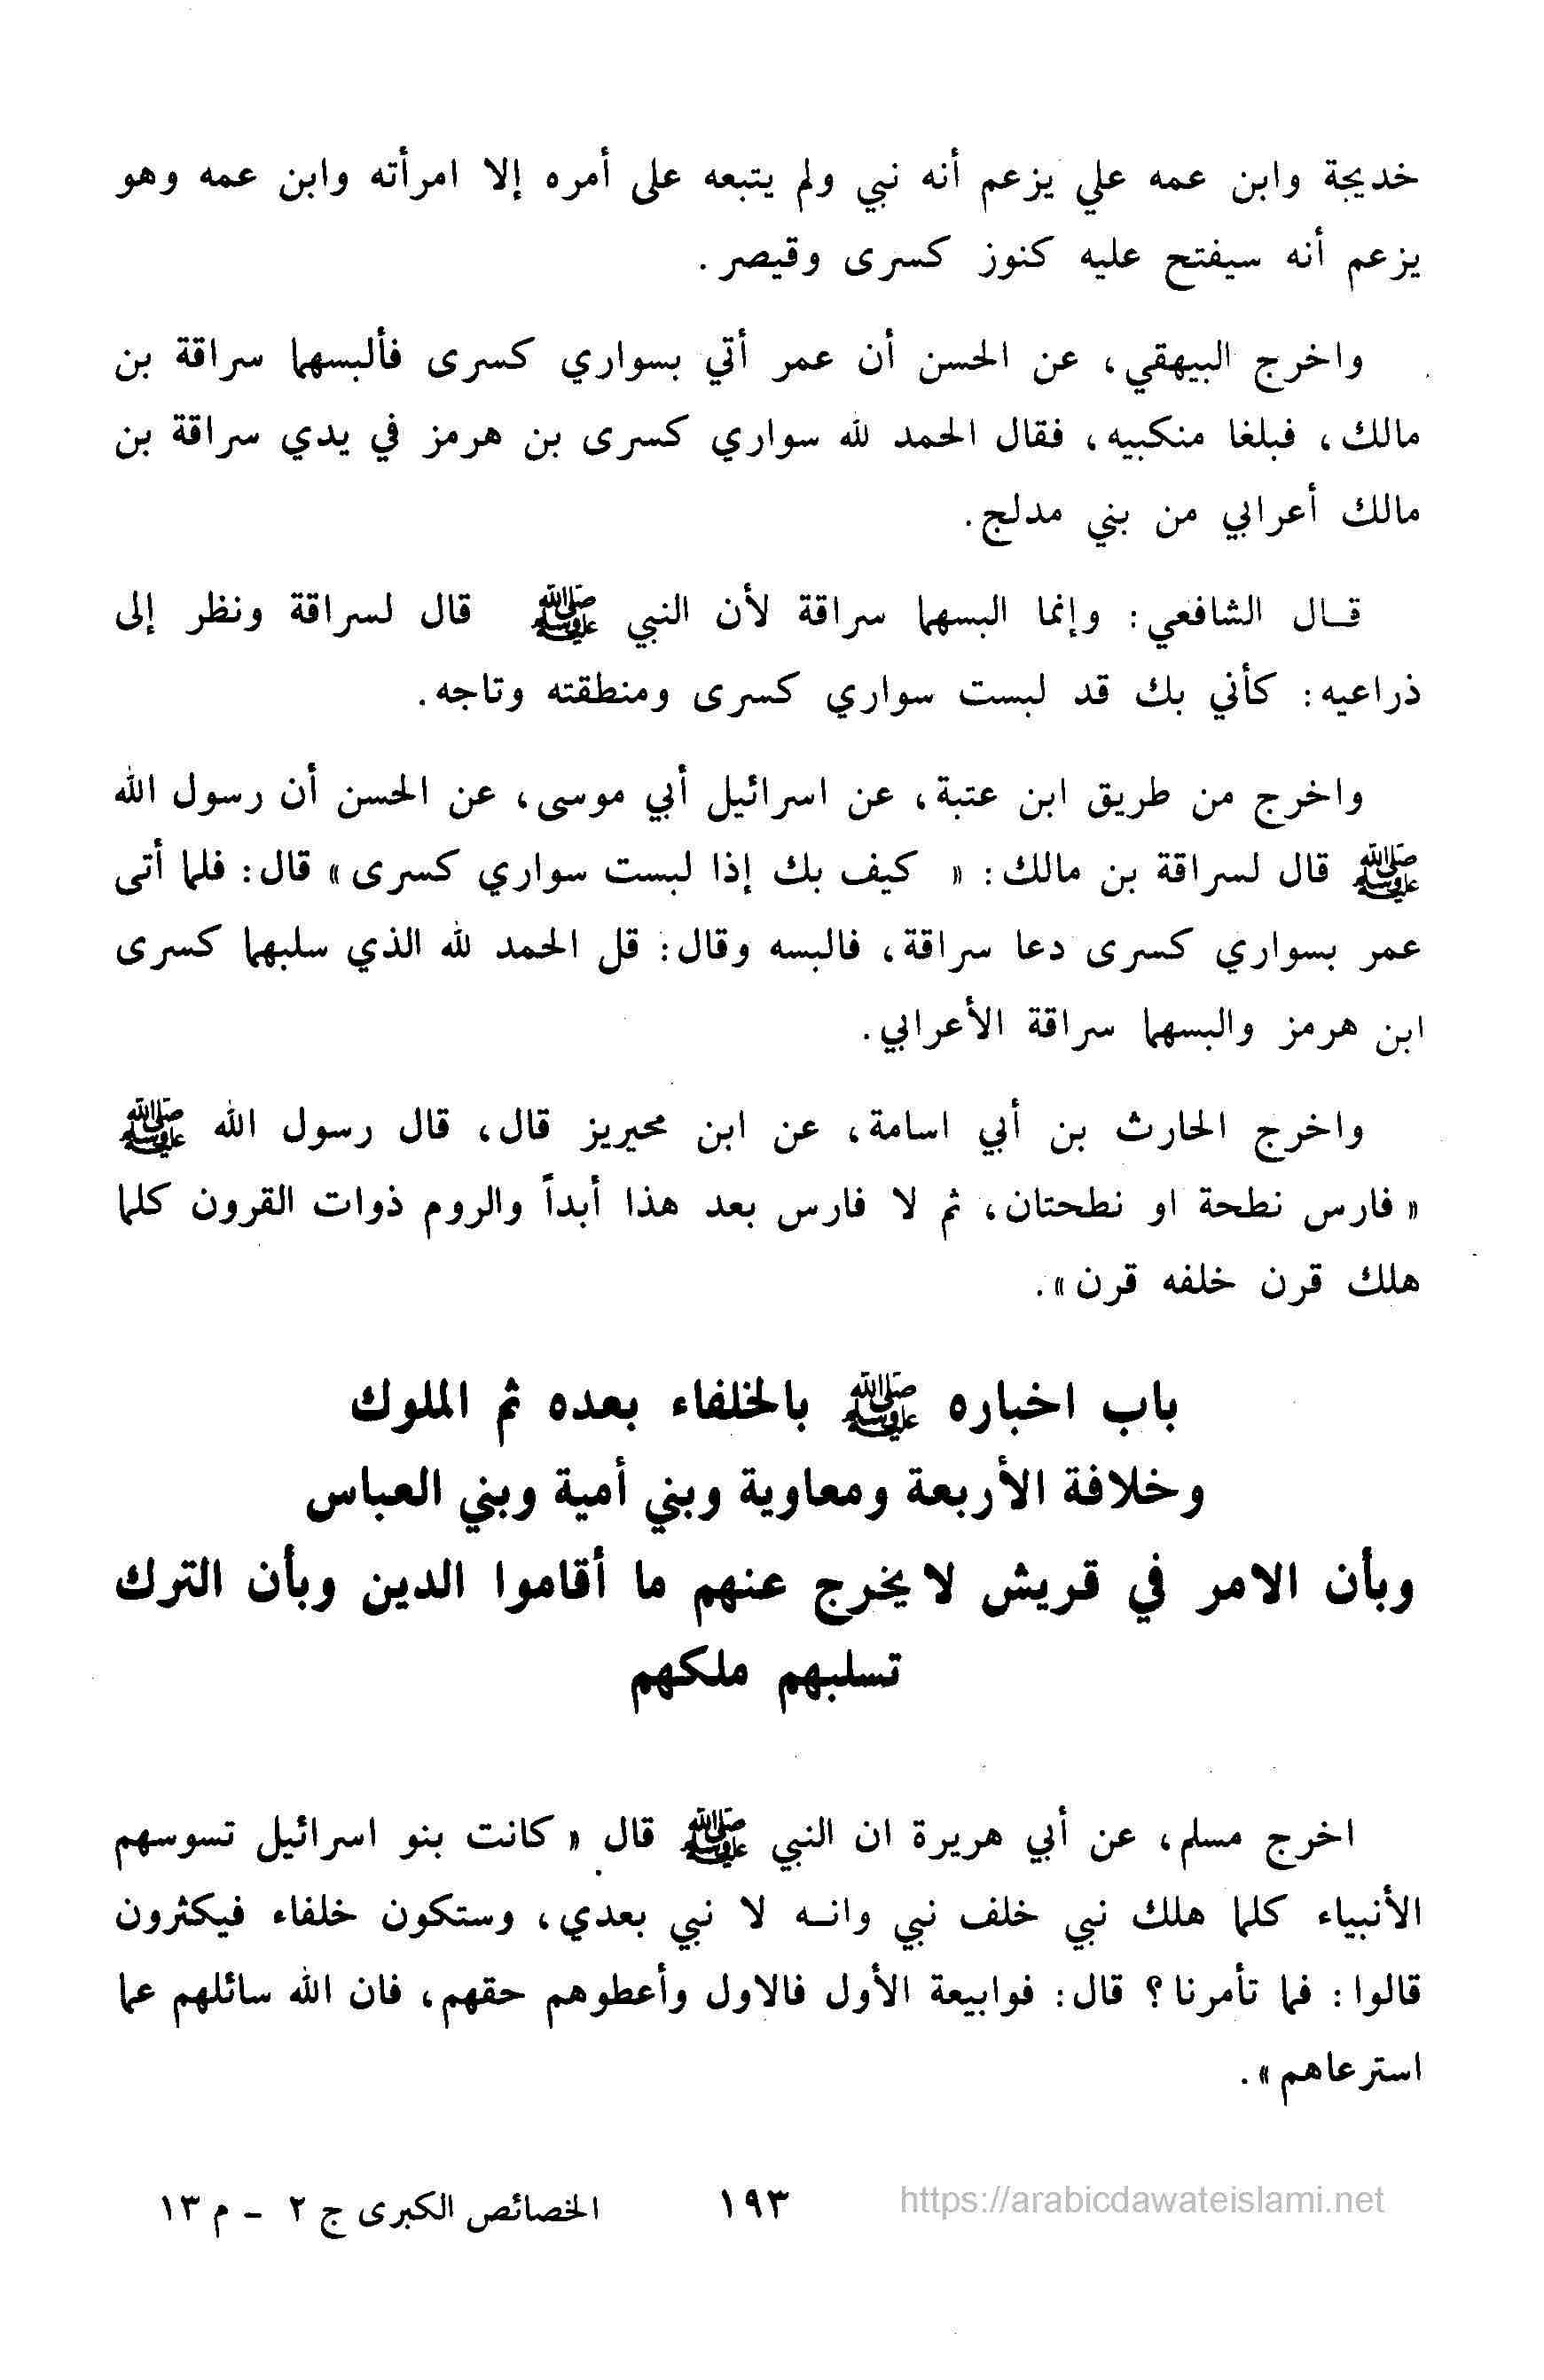 خديجة وابن عمه علي يزعم أنه نبي ولم يتبعه على أمره إلا امرأته وابن عمه وهو
يزعم أنه سيفتح عليه كنوز كسرى وقيصر .
واخرج البيهقي، عن الحسن أن عمر أتي بسواري كسرى فألبسهما سراقة بن
مالك، فبلغا منكبيه، فقال الحمد لله سواري كسرى بن هرمز في يدي سراقة بن
مالك أعرابي من بني مدلج.
قـال الشافعي: وإنما البسهما سراقة لأن النبي ﷺ قال لسراقة ونظر إلى
ذراعيه: كأني بك قد لبست سواري كسرى ومنطقته وتاجه.
واخرج من طريق ابن عتبة، عن اسرائيل أبي موسى، عن الحسن أن رسول الله
ﷺ قال لسراقة بن مالك: « كيف بك إذا لبست سواري كسرى» قال: فلما أتى
عمر بسواري كسرى دعا سراقة، فالبسه وقال: قل الحمد لله الذي سلبهما كسرى
ابن هرمز والبسهما سراقة الأعرابي.
واخرج الحارث بن أبي اسامة، عن ابن محيريز قال، قال رسول الله ﷺ
« فارس نطحة او نطحتان، ثم لا فارس بعد هذا أبداً والروم ذوات القرون كلما
هلك قرن خلفه قرن».
باب اخباره ﷺ بالخلفاء بعده ثم الملوك
وخلافة الأربعة ومعاوية وبني أمية وبني العباس
وبأن الامر في قريش لا يخرج عنهم ما أقاموا الدين وبأن الترك
تسلبهم ملكهم
اخرج مسلم، عن أبي هريرة ان النبي ﷺ قال « كانت بنو اسرائيل تسوسهم
الأنبياء كلما هلك نبي خلف نبي وانـه لا نبي بعدي، وستكون خلفاء فيكثرون
قالوا: فما تأمرنا؟ قال: فوابيعة الأول فالاول وأعطوهم حقهم، فان الله سائلهم عما
استرعاهم».
https://arabicdawateislami.net ١٩٣ الخصائص الكبرى ج ٢ - م ١٣